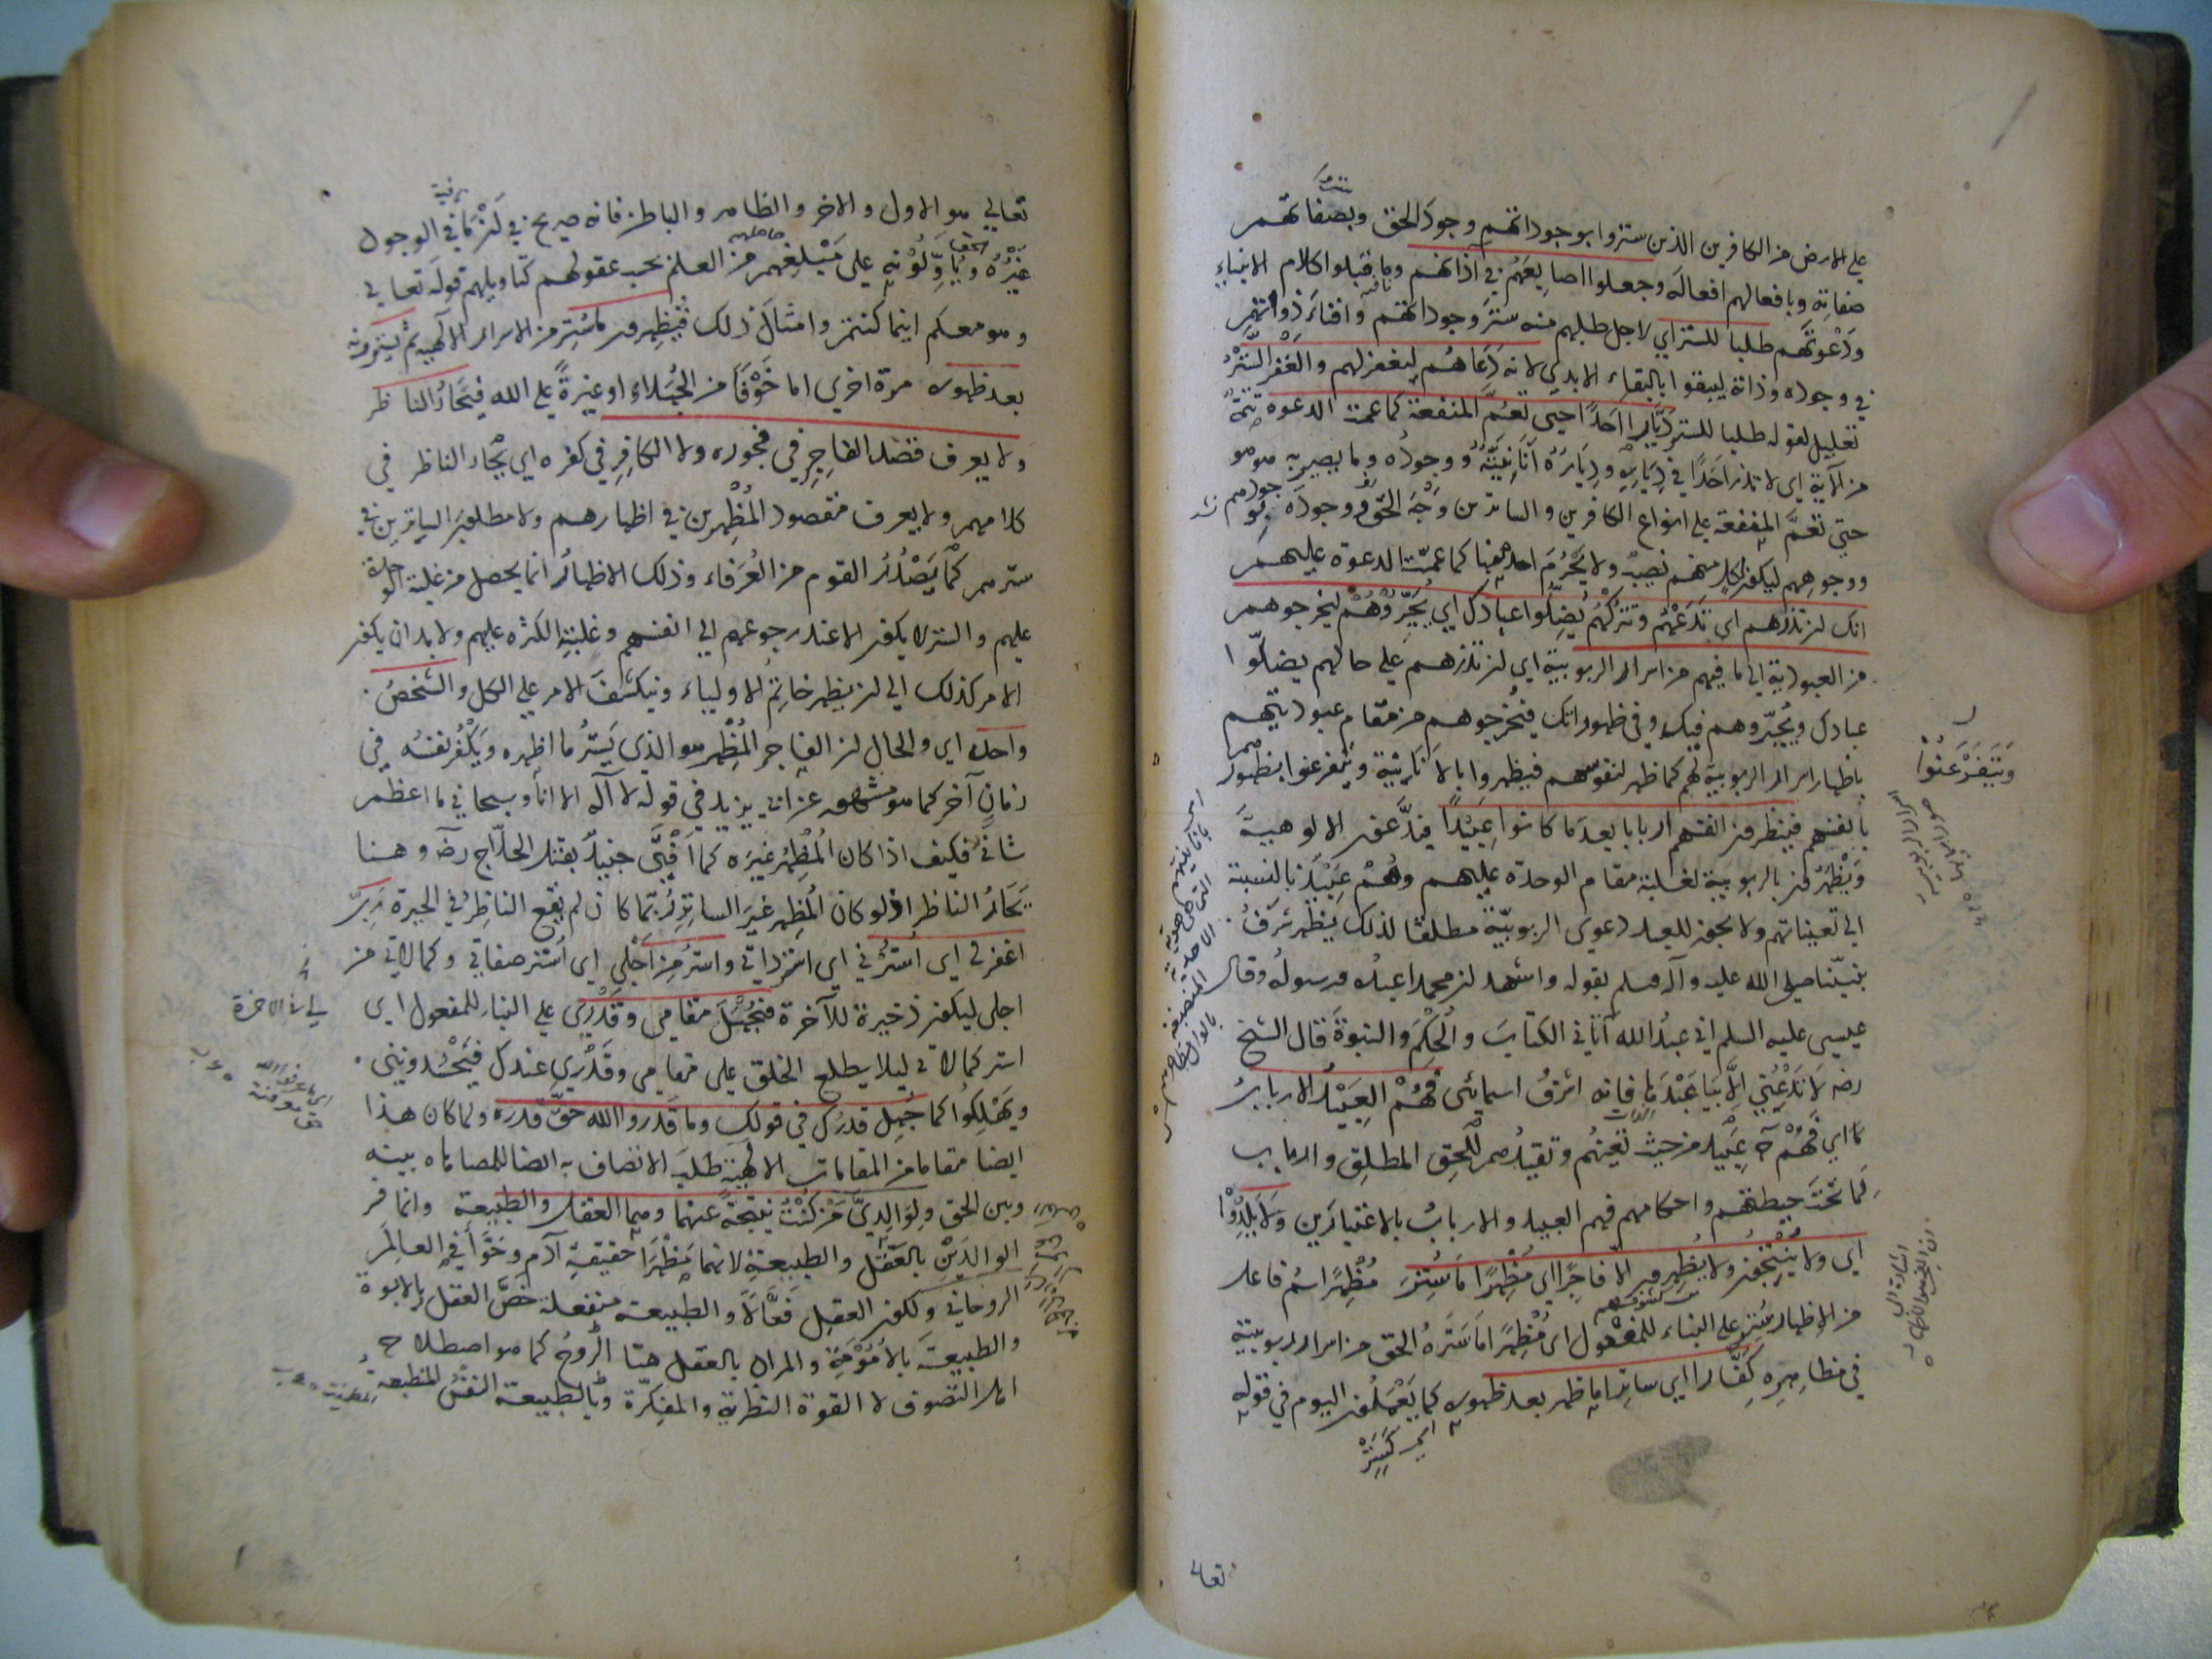 على الارض من الكافرين الذين ستروا بوجوداتهم وجود الحق وبصفاتهم
صفاته وبافعالهم افعاله وجعلوا اصابعهم في اذانهم وما قبلوا كلام الانبياء
ودعوتهم طلبا للستر اي لاجل طلبهم منه ستر وجوداتهم وافناء ذواتهم
في وجوده وذاته ليبقوا بالبقاء الابدي لانه دعاهم ليغفر لهم والغفر الستر
تعليل لقوله طلبا للستر ديارا احدا حتى تعم المنفعة كما عمت الدعوة تتمة
من الآية اي لا تذر احدا في دياره ودياره انانيته ووجوده وما يصير به هو هو
حتى تعم المنفعة على انواع الكافرين والساترين وجه الحق ووجوده
ووجوههم ليكون لكل منهم نصيب ولا يحرم احد منها كما عمت الدعوة عليهم
انك ان تذرهم اي تدعهم وتتركهم يضلوا عبادك اي يحيروهم ليخرجوهم
من العبودية الى ما فيهم من اسرار الربوبية اي ان تذرهم على حالهم يضلوا
عبادك ويحيروهم فيك وفي ظهوراتك فيخرجوهم من مقام عبوديتهم
باظهار اسرار الربوبية لهم كما ظهر لنفوسهم فيظهروا بالانانية ويتفرعنوا بظهور
ويتفرعنوا
بانفسهم فينظرون انفسهم اربابا بعد ما كانوا عبيدا فيدعون الالوهية
ويظهرون بالربوبية لغلبة مقام الوحدة عليهم وهم عبيد بالنسبة
الى تعيناتهم ولا يجوز للعبد دعوى الربوبية مطلقا لذلك يظهر شرف
نبينا صلى الله عليه وآله وسلم بقوله واشهد ان محمدا عبده ورسوله وقال
عيسى عليه السلم اني عبد الله آتاني الكتاب والحكم والنبوة قال الشيخ
رضه لا تدعني الا بيا عبدها فانه اشرف اسمائي فهم العبيد الارباب
اي فهم عبيد من حيث تعينهم وتقيدهم للحق المطلق وارباب
لما تحت حيطتهم واحكامهم فهم العبيد والارباب بالاعتبارين ولا يلدوا
اي ولا ينتجون ولا يظهرون الا فاجرا اي مظهرا ما ستر مظهرا اسم فاعل
من الاظهار ستر على البناء للمفعول اي مظهرا ما ستره الحق من اسرار ربوبيته
في مظاهره كفارا اي ساترا ما ظهر بعد ظهوره كما يعملون اليوم في قوله
تعالى
تعالى هو الاول والاخر والظاهر والباطن فانه صريح في ان ما في الوجود
غيره ويأولونه على مبلغهم من العلم بحسب عقولهم كتأويلهم قوله تعالى
وهو معكم اينما كنتم وامثال ذلك فيظهرون ما ستر من الاسرار الالهية ثم يسترونه
بعد ظهوره مرة اخرى اما خوفا من الجهلاء او غيرة على الله فيحار الناظر
ولا يعرف قصد الفاجر في فجوره ولا الكافر في كفره اي يحار الناظر في
كلامهم ولا يعرف مقصود المظهرين في اظهارهم ولا مطلوب الساترين في
سترهم كما يصدر القوم من العرفاء وذلك الاظهار انما يحصل من غلبة الوحدة
عليهم والستر لا يكون الا عند رجوعهم الى انفسهم وغلبة الكثرة عليهم ولا بد ان يكون
الامر كذلك الى ان يظهر خاتم الاولياء وينكشف الامر على الكل والشخص
واحد اي والحال ان الفاجر المظهر هو الذي يستر ما اظهره ويكفر نفسه في
زمان آخر كما هو مشهور عن ابي يزيد في قوله لا اله الا انا وسبحاني ما اعظم
شاني فكيف اذا كان المظهر غيره كما افتى جنيد بقتل الحلاج رضه وهنا
يحار الناظر اذ لو كان المظهر غير الساتر ربما كان لم يقع الناظر في الحيرة رب
اغفر لي اي استرني اي استر ذاتي واستر من اجلي اي استر صفاتي وكمالاتي من
اجلي ليكون ذخيرة للآخرة فيجهل مقامي وقدري على البناء للمفعول اي
استر كمالاتي ليلا يطلع الخلق على مقامي وقدري عندك فيحسدونني
ويهلكوا كما جهل قدرك في قولك وما قدروا الله حق قدره ولما كان هذا
ايضا مقاما من المقامات الالهية طلب الاتصاف به ايضا للمضاهاة بينه
وبين الحق ولوالدي من كنت نتيجة عنهما وهما العقل والطبيعة وانما فسر
الوالدين بالعقل والطبيعة لانهما مظهرا حقيقة آدم وحوا في العالم
الروحاني ولكون العقل فعالا والطبيعة منفعلة خص العقل بالابوة
والطبيعة بالامومة والمراد بالعقل هنا الروح كما هو اصطلاح
اهل التصوف لا القوة النظرية والمفكرة وبالطبيعة النفس المنطبعة